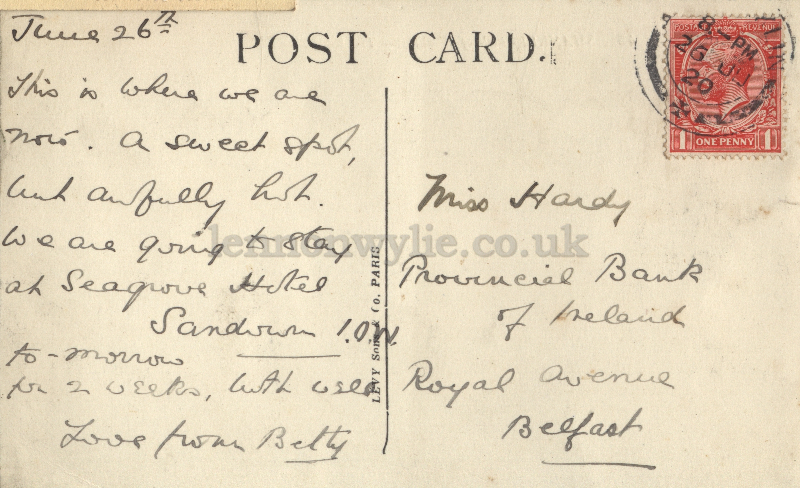 June 26th
POST CARD.
This is where we are
now. A sweet spot,
but awfully hot.
We are going to stay
at Seagrove Hotel
Sandown I.O.W.
to-morrow
for 2 weeks, both well
Love from Betty
Miss Hardy
Provincial Bank
of Ireland
Royal Avenue
Belfast
LEVY SONS & Co. PARIS
POSTAGE REVENUE
ONE PENNY
1 1
PM
20
lennonwylie.co.uk